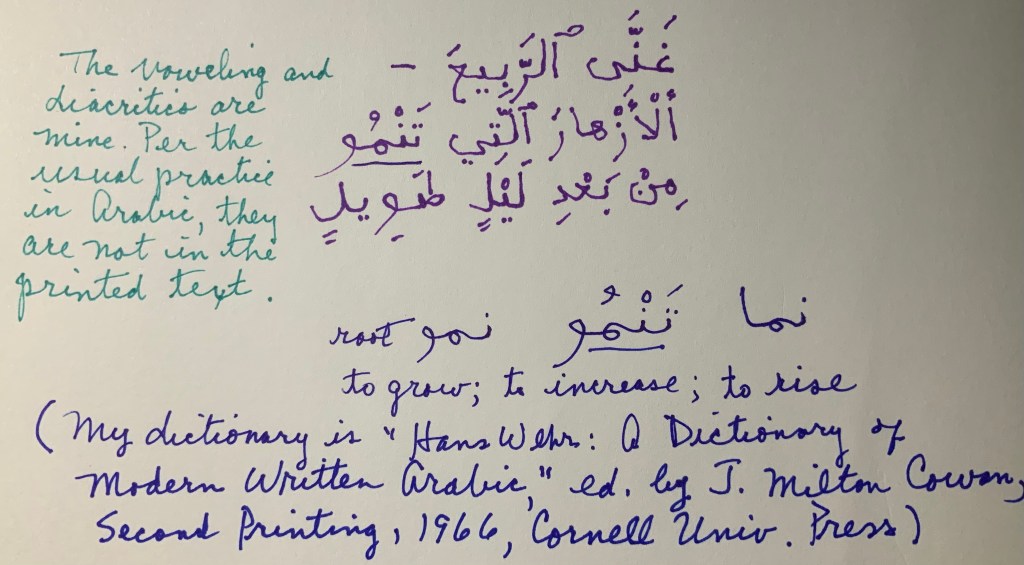 The voweling and
diacritics are
mine. Per the
usual practice
in Arabic, they
are not in the
printed text.
غَنَّى ٱلرَّبِيعَ –
أَلْأَزْهارُ ٱلَّتِي تَنْمُو
مِنْ بَعْدِ لَيْلٍ طَوِيلٍ
نما تَنْمُو نمو root
to grow; to increase; to rise
(My dictionary is "Hans Wehr: A Dictionary of
Modern Written Arabic," ed. by J. Milton Cowan,
Second Printing, 1966, Cornell Univ. Press)